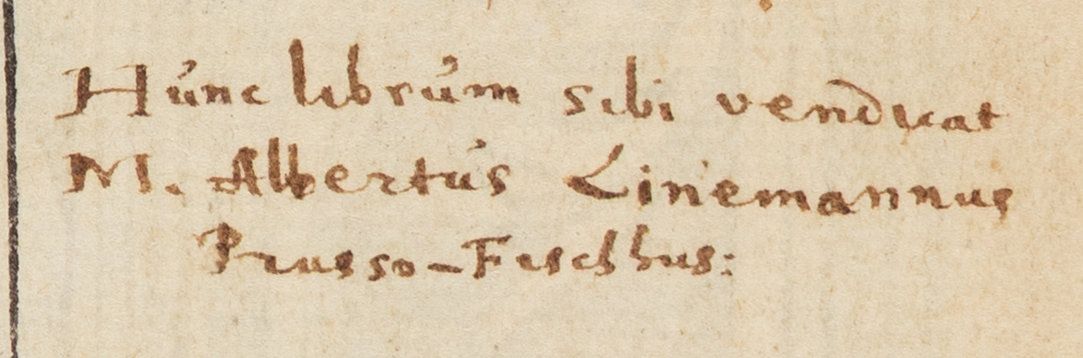 Húnc librúm sibi vendicat
M. Albertús Linemannus
Prusso-Fischhus: